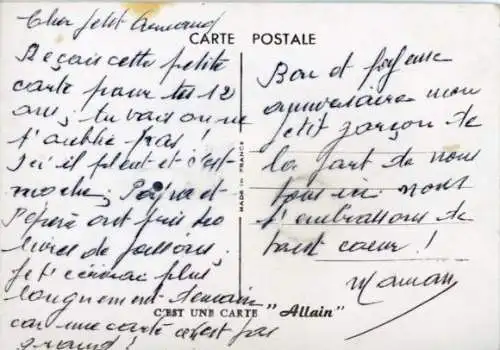 CARTE POSTALE
Cher petit Armand
Reçois cette petite
carte pour tes 12
ans ; tu vois on ne
t'oublie pas !
Ici il pleut et c'est
moche ; et
Pépère ont pris 20
livres de poissons.
Je t'écrirai plus
longuement demain
car une carte c'est pas
grand !
Bon et joyeux
anniversaire mon
petit garçon de
la part de nous
tous ici. nous
t'embrassons de
tout coeur !
Maman
MADE IN FRANCE
C'EST UNE CARTE "Allain"